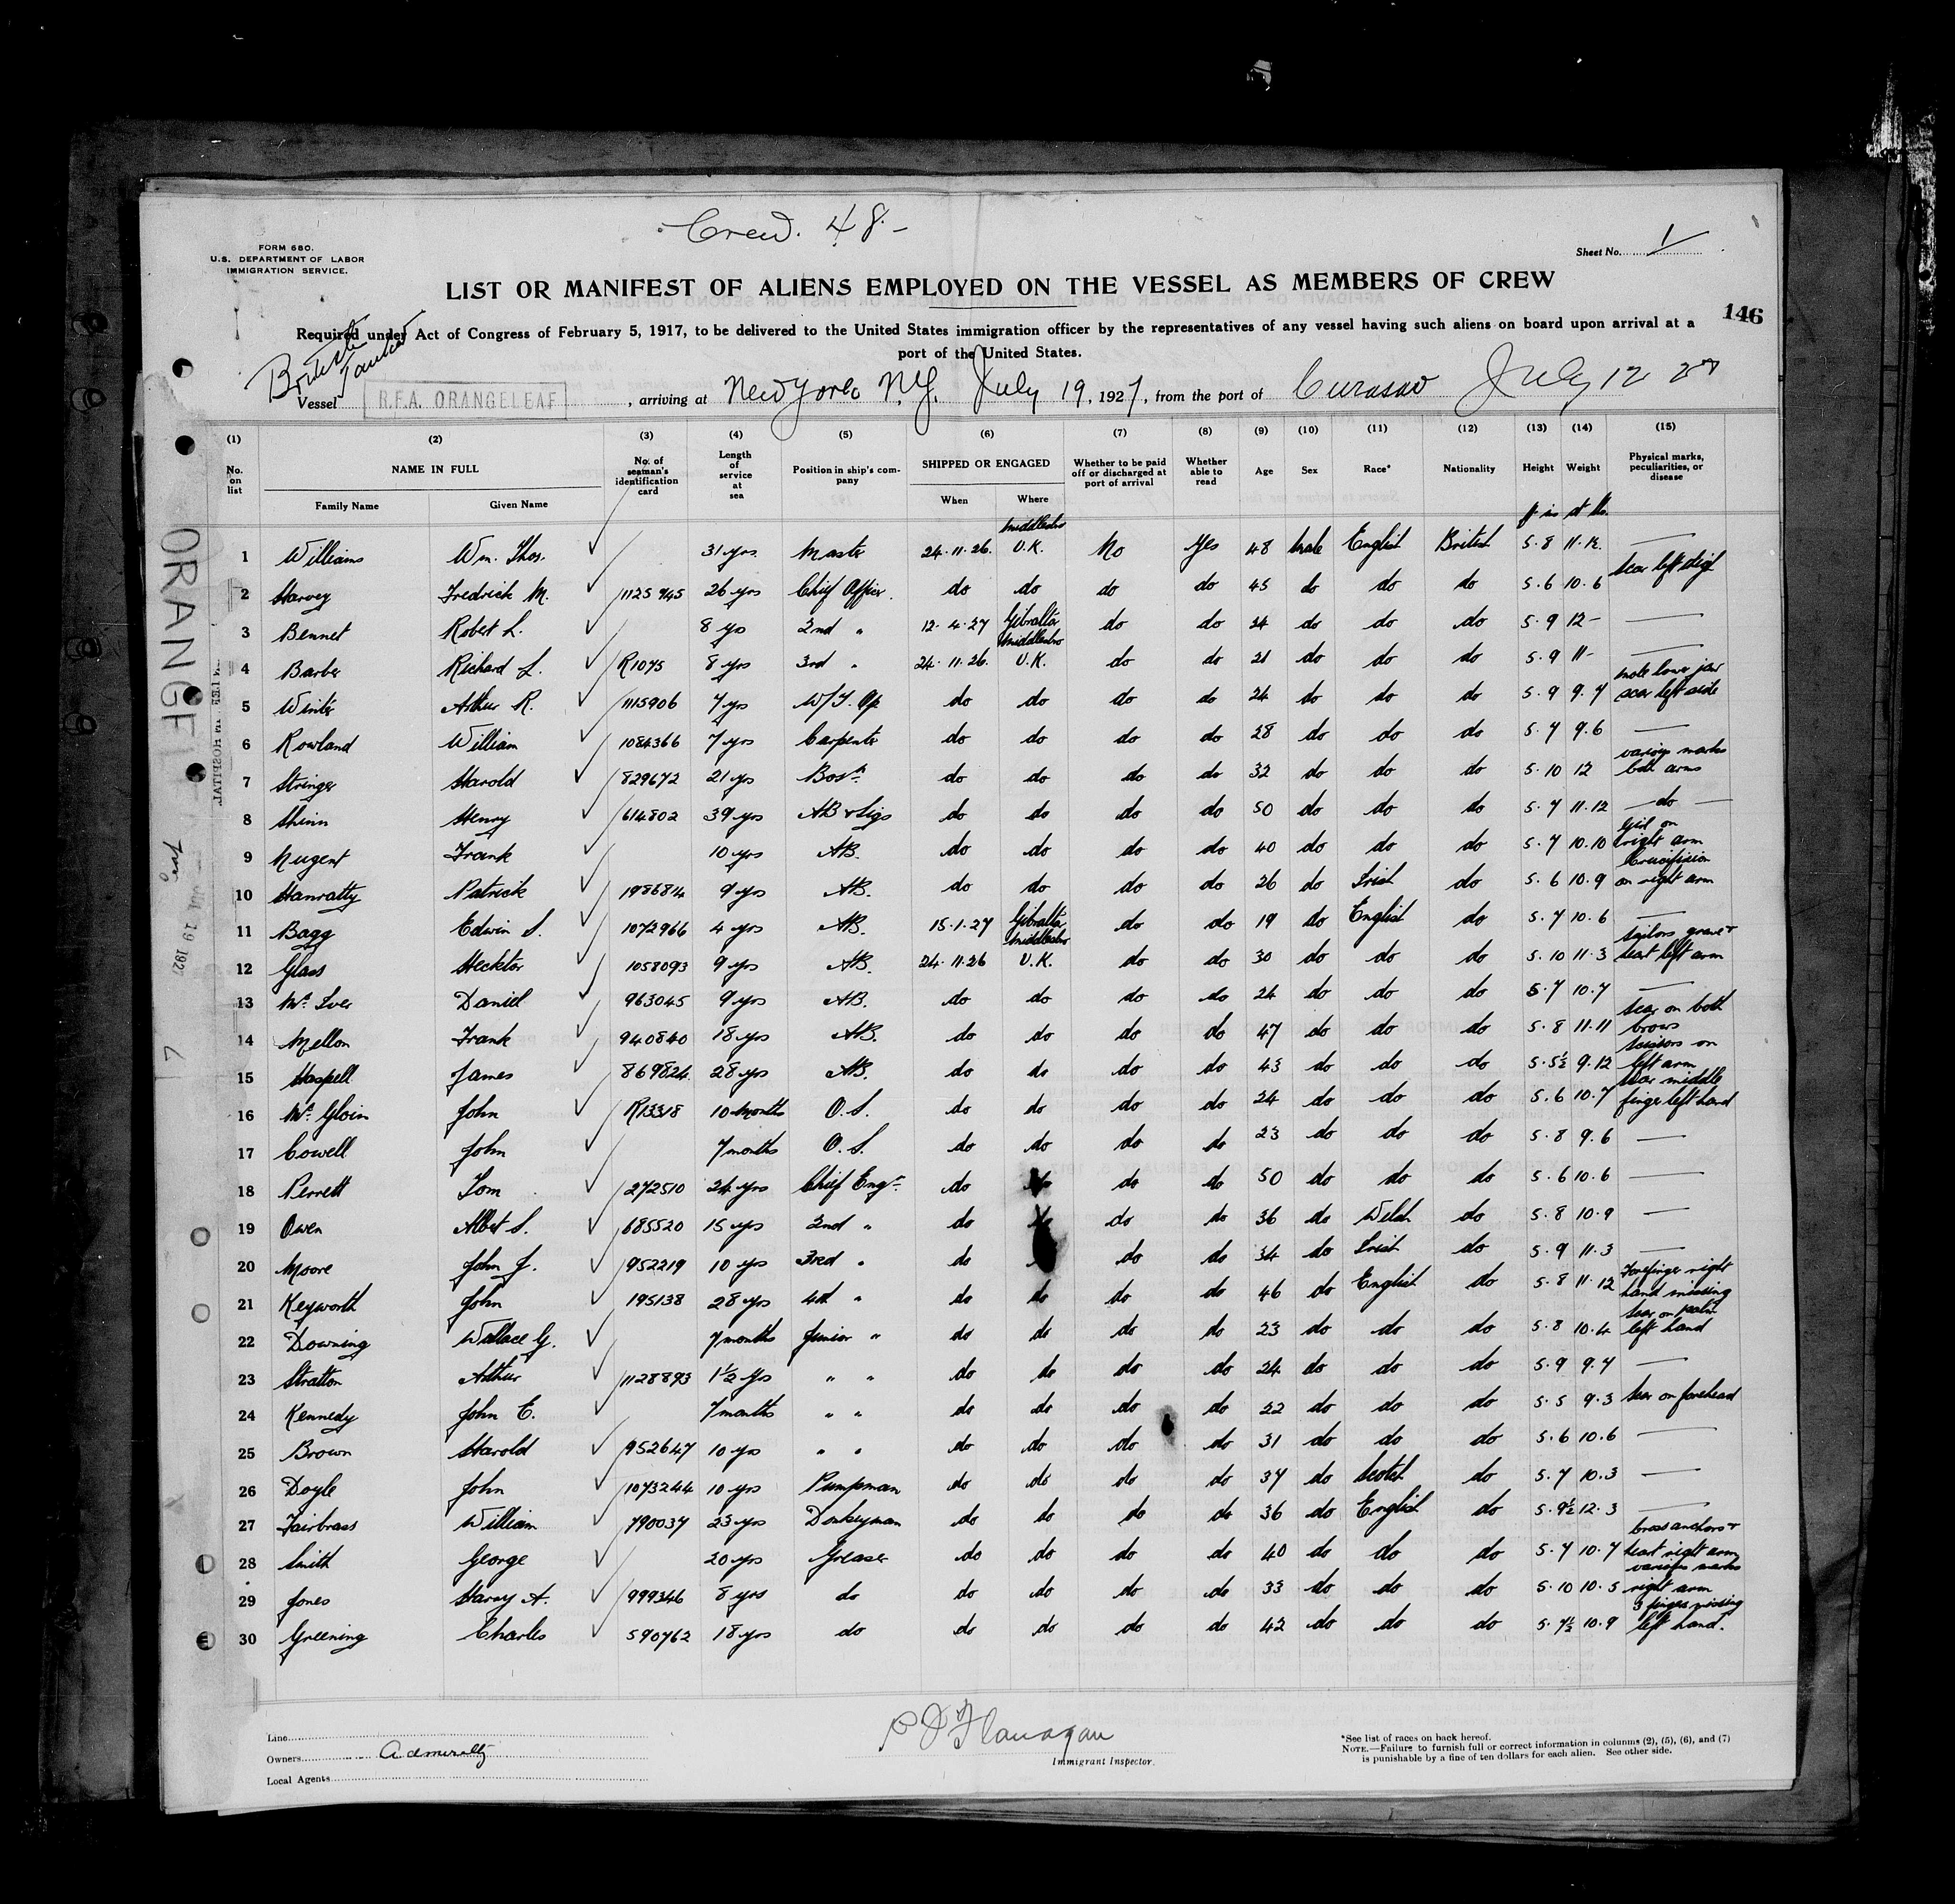 Crew. 48 -
FORM 680.
U.S. DEPARTMENT OF LABOR
IMMIGRATION SERVICE.
Sheet No. 1
LIST OR MANIFEST OF ALIENS EMPLOYED ON THE VESSEL AS MEMBERS OF CREW
146
Required under Act of Congress of February 5, 1917, to be delivered to the United States immigration officer by the representatives of any vessel having such aliens on board upon arrival at a
port of the United States.
British Tanker
Vessel R.F.A. ORANGELEAF, arriving at New York N.Y. July 19, 1927, from the port of Curasao July 12 27
(1) (2) (3) (4) (5) (6) (7) (8) (9) (10) (11) (12) (13) (14) (15)
No. on list NAME IN FULL No. of seaman's identification card Length of service at sea Position in ship's company SHIPPED OR ENGAGED Whether to be paid off or discharged at port of arrival Whether able to read Age Sex Race* Nationality Height Weight Physical marks, peculiarities, or disease
Family Name Given Name When Where
ft ins st lbs.
1 Williams Wm. Thos. 31 yrs Master 24.11.26. Middlesbro U.K. No Yes 48 Male English British 5.8 11.12. —
2 Harvey Fredrick M. 1125945 26 yrs Chief Officer. do do do do 45 do do do 5.6 10.6 scar left
3 Bennet Robert L. 8 yrs 2nd " 12.4.27 Gibralta do do 34 do do do 5.9 12 - —
4 Barber Richard L. R1075 8 yrs 3rd " 24.11.26. Middlesbro U.K. do do 21 do do do 5.9 11 - —
5 Winter Arthur R. 1115906 7 yrs W/T. Op do do do do 24 do do do 5.9 9.7 mole lower jaw scar left side
6 Rowland William 1084366 7 yrs Carpenter do do do do 28 do do do 5.7 9.6 —
7 Stringer Harold 829672 21 yrs Bosn do do do do 32 do do do 5.10 12 various marks both arms
8 Shinn Henry 614802 39 yrs AB + Sigs do do do do 50 do do do 5.7 11.12 — do —
9 Nugent Frank 10 yrs AB. do do do do 40 do do do 5.7 10.10 girl on right arm
10 Hanratty Patrick 1986814 9 yrs AB. do do do do 26 do Irish do 5.6 10.9 crucifixion on right arm
11 Bagg Edwin S. 1072966 4 yrs AB. 15.1.27 Gibralta do do 19 do English do 5.7 10.6 —
12 Glass Hecktor 1058093 9 yrs AB. 24.11.26 Middlesbro U.K. do do 30 do do do 5.10 11.3 sailors grave + heart left arm
13 Mc Iver Daniel 963045 9 yrs AB. do do do do 24 do do do 5.7 10.7 —
14 Mellon Frank 940840 18 yrs AB. do do do do 47 do do do 5.8 11.11 scar on both brows
15 Haspell James 869824 28 yrs AB. do do do do 43 do do do 5.5½ 9.12 scissors on left arm
16 Mc Gloin John R13318 10 months O.S. do do do do 24 do do do 5.6 10.7 scar middle finger left hand
17 Cowell John 7 months O.S. do do do do 23 do do do 5.8 9.6 —
18 Perrett Tom 272510 24 yrs Chief Engr. do do do do 50 do do do 5.6 10.6 —
19 Owen Albert S. 685520 15 yrs 2nd " do do do 36 do Welsh do 5.8 10.9 —
20 Moore John J. 952219 10 yrs 3rd " do do do 34 do Irish do 5.9 11.3 —
21 Keyworth John 195138 28 yrs 4th " do do do do 46 do English do 5.8 11.12 Forefinger right hand missing
22 Downing Wallace G. 7 months Junior " do do do do 23 do do do 5.8 10.4 scar on palm left hand
23 Stratton Arthur 1128893 1½ yrs " " do do do do 24 do do do 5.9 9.7 —
24 Kennedy John E. 7 months " " do do do do 22 do do do 5.5 9.3 scar on forehead
25 Brown Harold 952647 10 yrs " " do do do do 31 do do do 5.6 10.6 —
26 Doyle John 1073244 10 yrs Pumpman do do do do 37 do Scotch do 5.7 10.3 —
27 Fairbrass William 790037 23 yrs Donkeyman do do do do 36 do English do 5.9½ 12.3 —
28 Smith George 20 yrs Greaser do do do do 40 do do do 5.7 10.7 cross anchors + heart right arm
29 Jones Harry A. 999346 8 yrs do do do do do 33 do do do 5.10 10.5 various marks right arm
30 Greening Charles 590762 18 yrs do do do do do 42 do do do 5.7½ 10.9 3 fingers missing left hand.
Line
Owners Admiralty
Local Agents
P J Flanagan
Immigrant Inspector.
*See list of races on back hereof.
NOTE.—Failure to furnish full or correct information in columns (2), (5), (6), and (7)
is punishable by a fine of ten dollars for each alien. See other side.